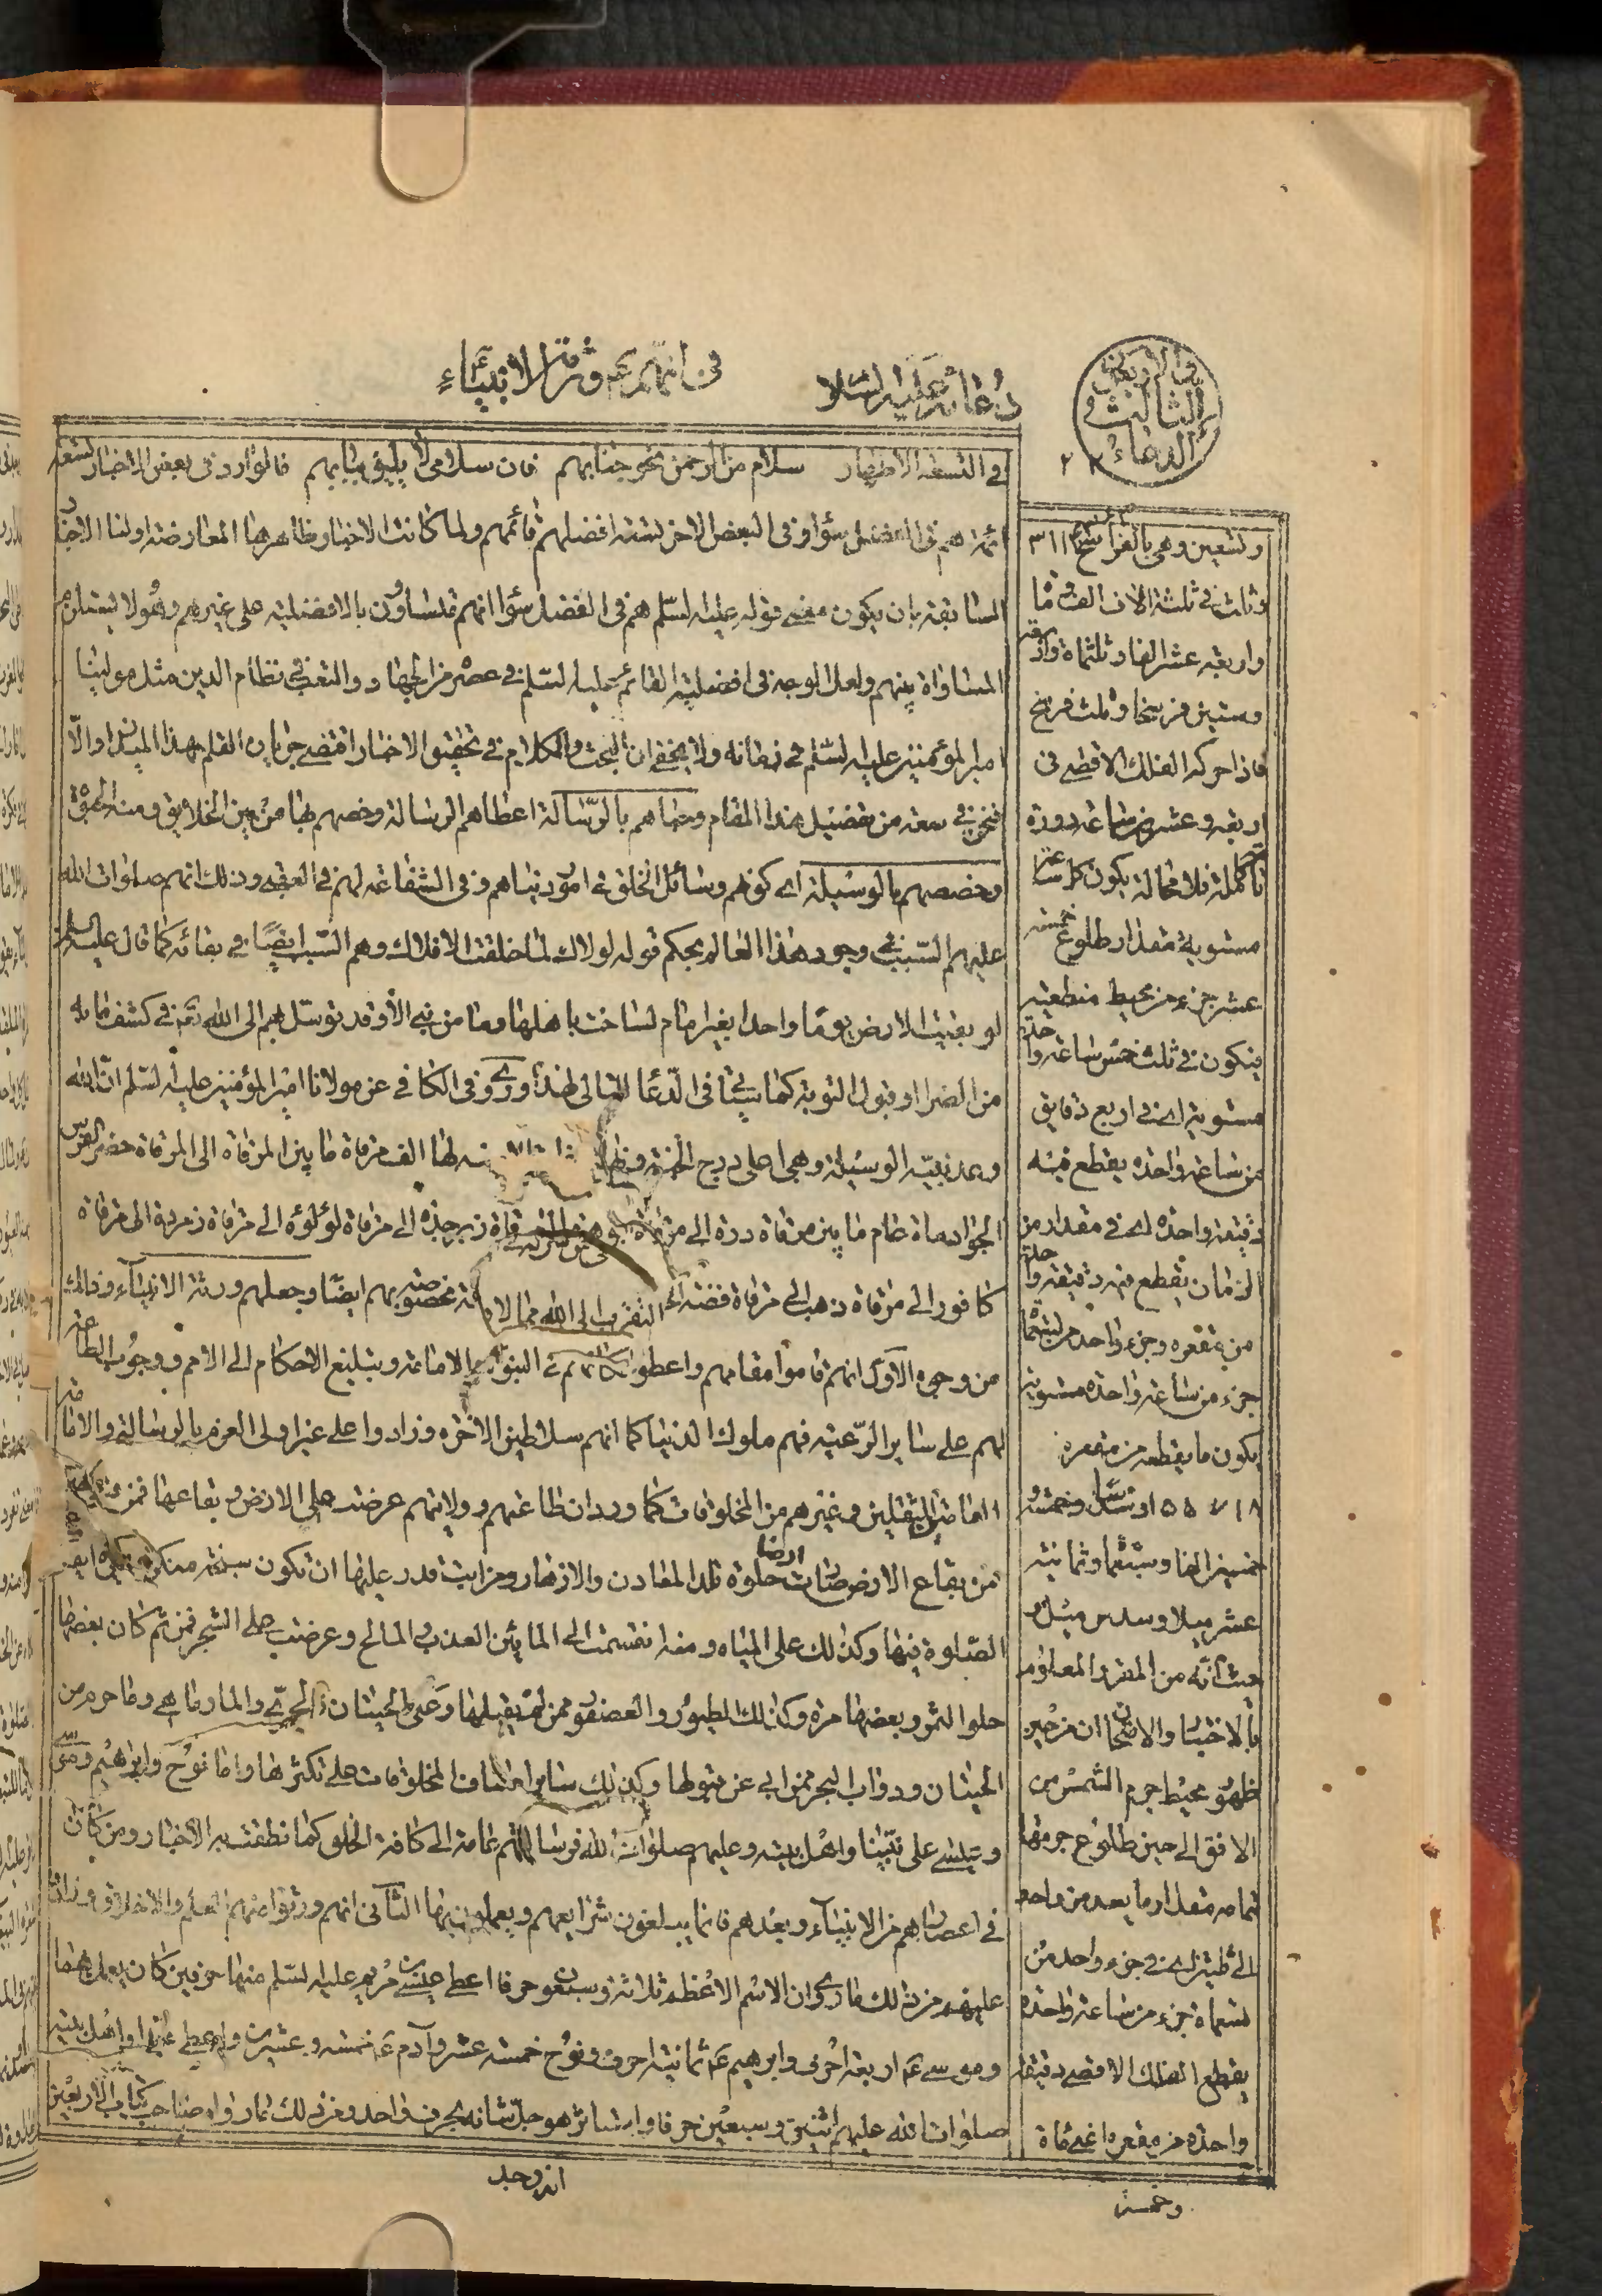 في انهم ورثة الانبياء
دعائه عليه السلام
الدعاء الثالث و
في والتسعة الاطهار سلام من الرحمن نحو جنابهم فان سلامي لا يليق ببابهم فالوارد في بعض الاخبار
ائمة هم في الفضل سواء وفي البعض الاخر تسعة افضلهم قائمهم ولما كانت الاخبار ظاهرها المعارضة اولنا الاخبار
السابقة بان يكون معنى قوله عليه السلم هم في الفضل سواء انهم متساوون بالافضلية على غيرهم وهو لا يستلزم
المساواة بينهم ولعل الوجه في افضلية القائم عليه السلم في عصره من الجهاد والتعب في نظام الدين مثل مولينا
امير المؤمنين عليه السلم في زمانه ولا يخفى ان البحث والكلام في تحقيق الاخبار اقتضى جريان القلم بهذا الميدان والا
فنحن في سعة من تفضيل هذا المقام وحباهم بالرسالة اعطاهم الرسالة وخصهم بها من بين الخلايق ومنه
وخصصهم بالوسيلة اي كونهم وسائل الخلق في امور دنياهم وفي الشفاعة لهم في العقبى وذلك انهم صلوات الله
عليهم السبب في وجود هذا العالم بحكم قوله لولاك لما خلقت الافلاك وهم السبب ايضا في بقائه كما قال عليه السلم
لو بقيت الارض يوما واحدا بغير امام لساخت باهلها وما من نبي الا وقد توسل بهم الى الله تعالى في كشف ما به
من الضر او قبول التوبة كما سيأتي في الدعاء التالي لهذا وروي في الكافي عن مولانا امير المؤمنين عليه السلم ان الله
وعد نبيه الوسيلة وهي اعلى درج الجنة ونهاية لها الف مرقاة ما بين المرقاة الى المرقاة حضر الفرس
الجواد مائة عام ما بين مرقاة درة الى مرقاة جوهرة زبرجدة الى مرقاة لؤلؤة الى مرقاة زمردة الى مرقاة
كافور الى مرقاة ذهب الى مرقاة فضة التقرب الى الله مخصوصة بهم ايضا وجعلهم ورثة الانبياء وذلك
من وجوه الاول انهم قاموا مقامهم واعطوا في النبوة الامامة وبتبليغ الاحكام الى الامم ووجوب الطاعة
لهم على ساير الرعية فهم ملوك الدنيا كما انهم سلاطين الاخرة وزادوا على غير اولى العزم بالرسالة والامامة
العامة للثقلين وغيرهم من المخلوقات كما ورد ان طاعتهم وولايتهم عرضت على الارض وبقاعها فمن
من بقاع الارض صارت ارضا حلوة تلد المعادن والازهار ومن ابت قدر عليها ان تكون سبخة
الصلوة فيها وكذلك على المياه ومنه انقسمت الى المائين العذب والمالح وعرضت على الشجر فمن ثم كان بعضها
حلو الثمر وبعضها مرة وكذلك الطيور والعصفور ممن لم يقبلها وعلى الحيتان فالجري والمارماهي وما حرم من
الحيتان ودواب البحر ممن ابى عن قبولها وكذلك ساير اصناف المخلوقات على تكثرها واما نوح وابراهيم وموسى
وعيسى على نبينا واهل بيته وعليهم صلوات الله فرسالتهم عامة الى كافة الخلق كما نطقت به الاخبار ومن كان
في اعصارهم من الانبياء وبعدهم فانما يبلغون شرايعهم ويعملون بها الثاني انهم ورثوا منهم العلم والاخلاق وزادوا
عليهم من ذلك ما روي ان الاسم الاعظم ثلاثة وسبعون حرفا اعطي عيسى بن مريم عليه السلم منها حرفين كان يعمل بهما
وموسى ع اربعة احرف وابراهيم ع ثمانية احرف ونوح خمسة عشر وآدم ع خمسة وعشرين واعطي محمدا واهل بيته
صلوات الله عليهم اثنين وسبعين حرفا واستاثر هو جل شانه بحرف واحد ومن ذلك ما رواه صاحب كتاب الاربعين
وتسعين وهي بالفراسخ ٣١١
وثلث في ثلثة الاف الف
واربعة عشر الفا وثلثمائة واربعة
وستين فرسخا وثلث فرسخ
فاذا حركة الفلك الاقصى في
اربعة وعشرين ساعة دورة
تامة كاملة فلا محالة يكون كل ساعة
مستوية مقدار طلوع خمسة
عشر جزء من محيط منطقته
فيكون في ثلث خمس ساعة واحدة
مستوية اي في اربع دقايق
من ساعة واحدة يقطع فيه
دقيقة واحدة اي في مقدار من
الزمان يقطع فيه دقيقة واحدة
من مقعره وجزء واحد من تسعمائة
جزء من ساعة واحدة مستوية
يكون ما يقطعه من مقعره
خمسين الفا وستمائة وثمانية
عشر ميلا وسدس ميل و
حيث انه من المقرر المعلوم
بالاختبار والامتحان ان من حين
ظهور محيط جرم الشمس من
الافق الى حين طلوع جرمها
تمامه مقدار ما يعد من واحد
الى ثلثين اي في جزء واحد من
تسعمائة جزء من ساعة واحدة
يقطع الفلك الاقصى دقيقة
واحدة من مقعره اعني مائة
انه وجد
وخمسين